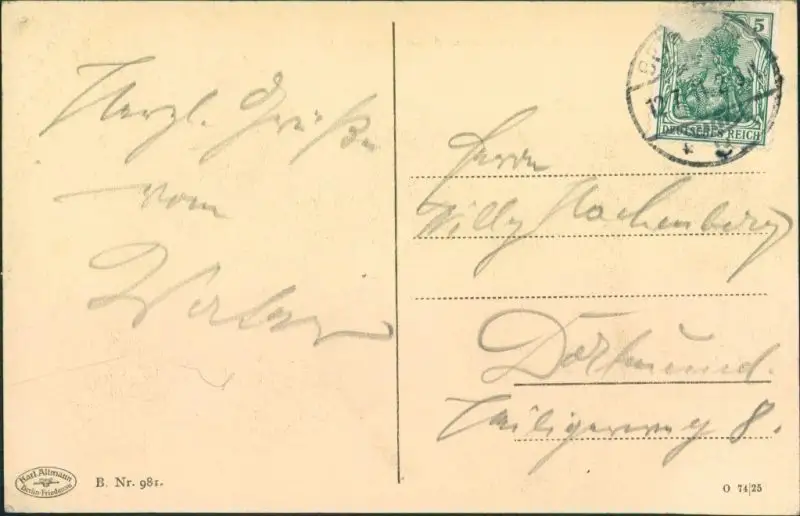 Herzl. Grüße
vom
5
DEUTSCHES REICH
Herrn
Willy Hachenberg
Dortmund.
Heiligerweg 8.
Karl Altmann
Berlin-Friedenau
B. Nr. 981.
O 74|25